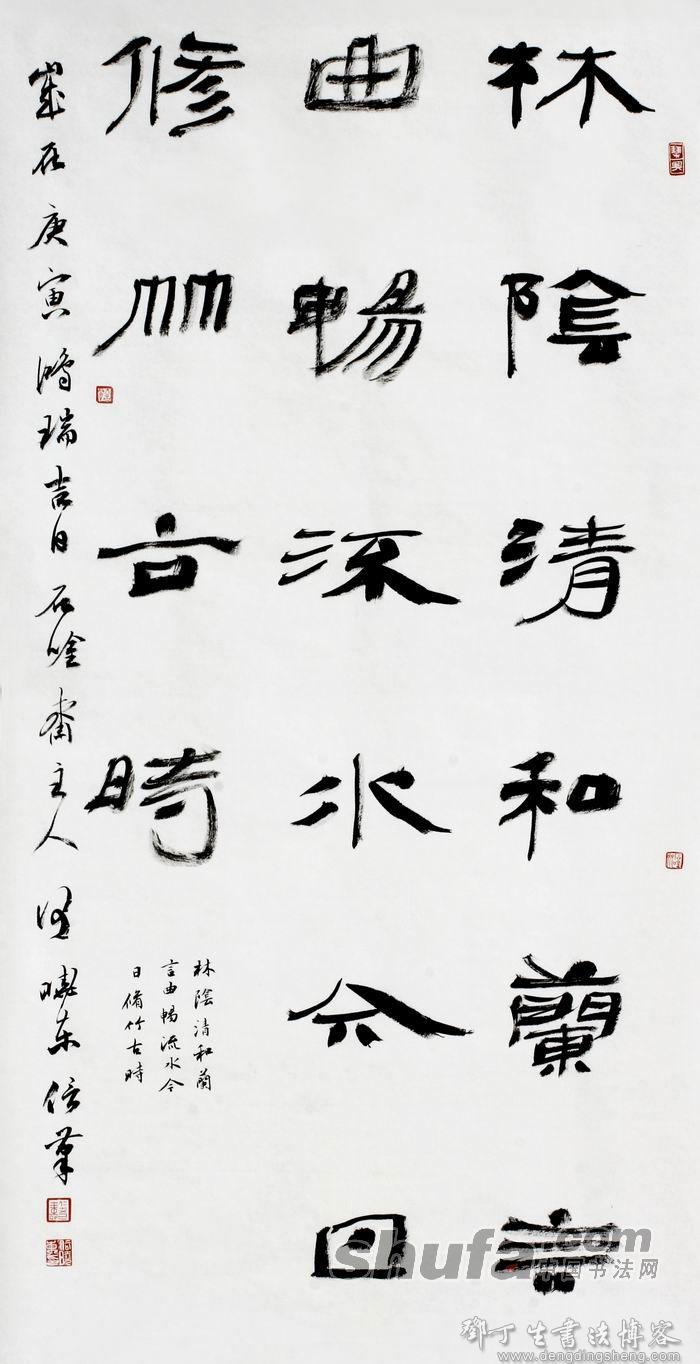 林陰清和蘭言
曲暢流水今日
修竹古時
林陰清和蘭
言曲暢流水今
日脩竹古時
歲在庚寅鴻瑞吉日石唫齋主人东信筆
Shufa.com
中国书法网
鄧丁生書法博客
www.dengdingsheng.com